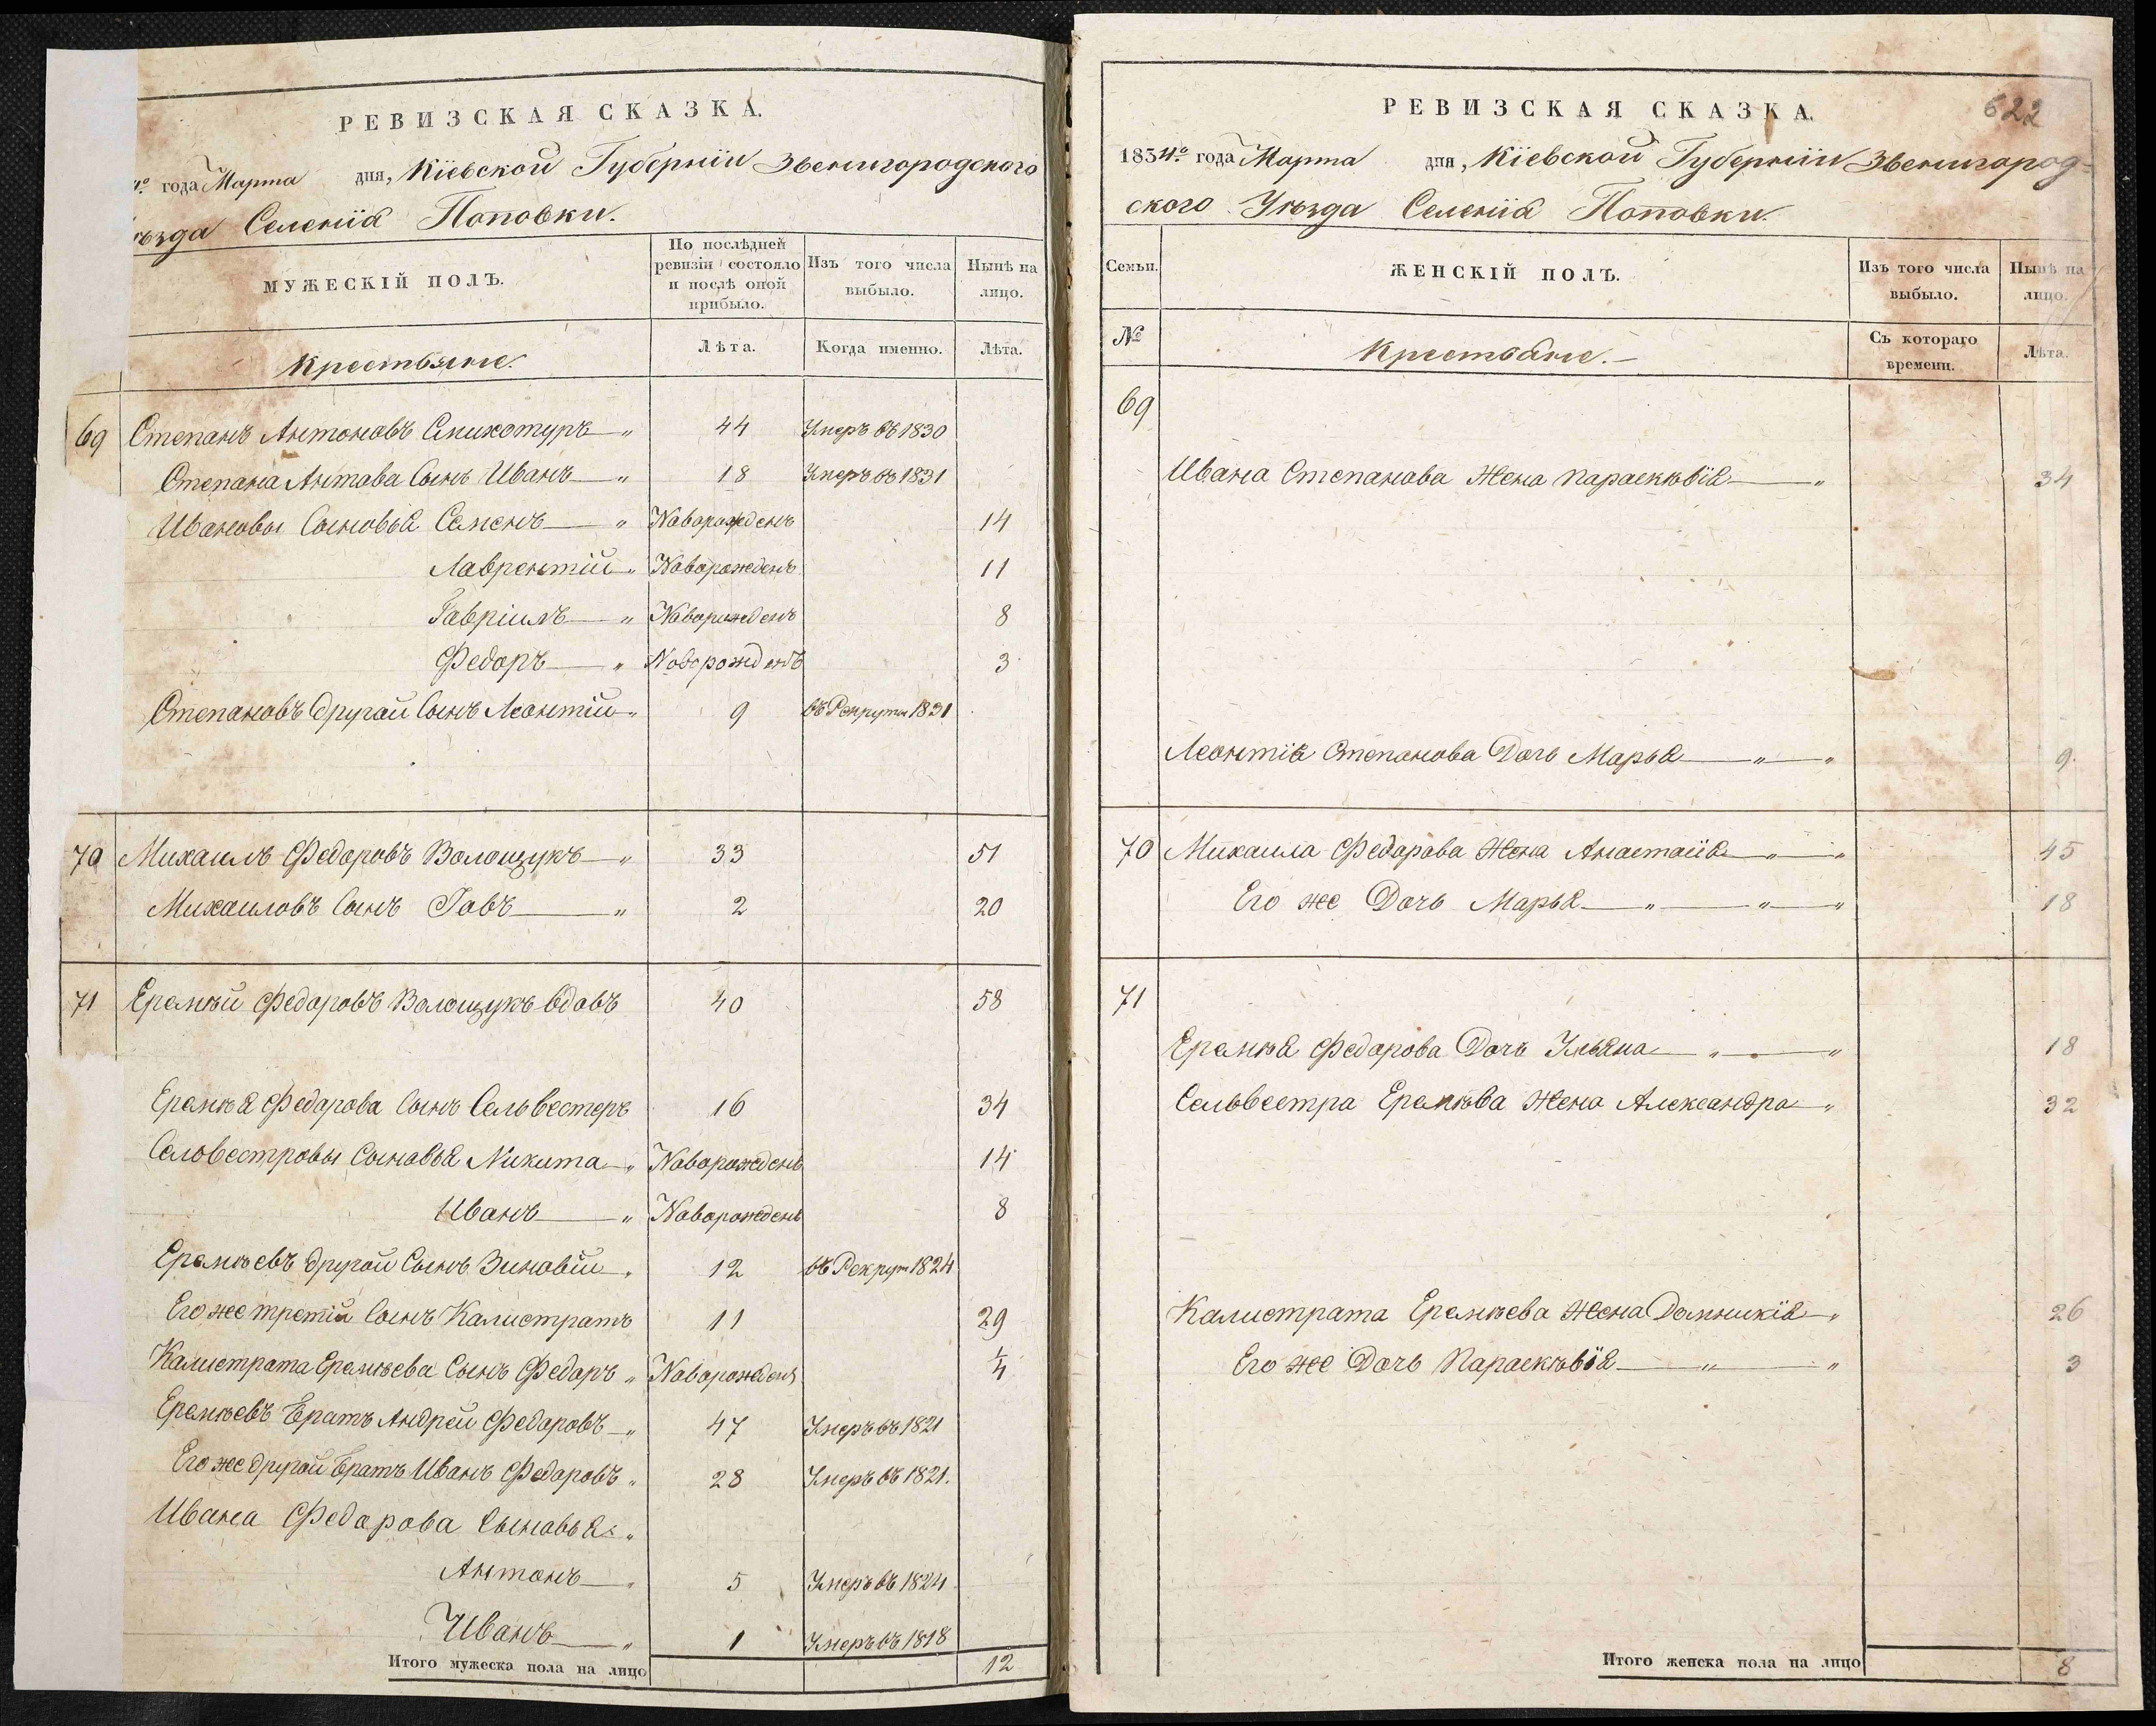 РЕВИЗСКАЯ СКАЗКА.
года Марта дня, Кіевской Губерніи Звенигородского
Селенія Поповки.
МУЖЕСКІЙ ПОЛЪ.
По послѣдней ревизіи состояло и послѣ оной прибыло.
Изъ того числа выбыло.
Нынѣ на лицо.
Крестьяне.
Лѣта.
Когда именно.
Лѣта.
69 Степанъ Антоновъ 44 Умеръ въ 1830
Степана Антова Сынъ Иванъ 18 Умеръ въ 1831
Ивановы Сыновья Семенъ Новорожденъ 14
Лаврентій Новорожденъ 11
Гавріилъ Новорожденъ 8
Федоръ Новорожденъ 3
Степановъ другой Сынъ Леонтій 9 въ Рекруты 1831
70 Михаилъ Федоровъ Волощукъ 33 51
Михаиловъ Сынъ Іовъ 2 20
71 Еремѣй Федоровъ Волощукъ вдовъ 40 58
Еремѣя Федорова Сынъ Сельвестеръ 16 34
Селвестровы Сыновья Никита Новорожденъ 14
Иванъ Новорожденъ 8
Еремѣевъ другой Сынъ Зиновій 12 въ Рекрут 1824
Его же третій Сынъ Калистратъ 11 29
Калистрата Еремѣева Сынъ Федоръ Новорожденъ 1/4
Еремѣевъ Братъ Андрей Федоровъ 47 Умеръ въ 1821
Его же другой Братъ Иванъ Федоровъ 28 Умеръ въ 1821.
Ивана Федорова Сыновья:
Антонъ 5 Умеръ въ 1824
Иванъ 1 Умеръ въ 1818
Итого мужеска пола на лицо 12
622
РЕВИЗСКАЯ СКАЗКА.
1834го года Марта дня, Кіевской Губерніи Звенигород-
ского Уѣзда Селенія Поповки.
Семьи.
ЖЕНСКІЙ ПОЛЪ.
Изъ того числа выбыло.
Нынѣ на лицо.
№
Крестьяне.
Съ котораго времени.
Лѣта.
69
Ивана Степанова Жена Параскѣвія 34
Леонтія Степанова Дочь Марья 9
70 Михаила Федорова Жена Анастасія 45
Его же Дочь Марья 18
71
Еремѣя Федорова Дочь Ульяна 18
Сельвестра Еремѣва Жена Александра 32
Калистрата Еремѣева Жена Домникія 26
Его же Дочь Параскѣвія 3
Итого женска пола на лицо 8